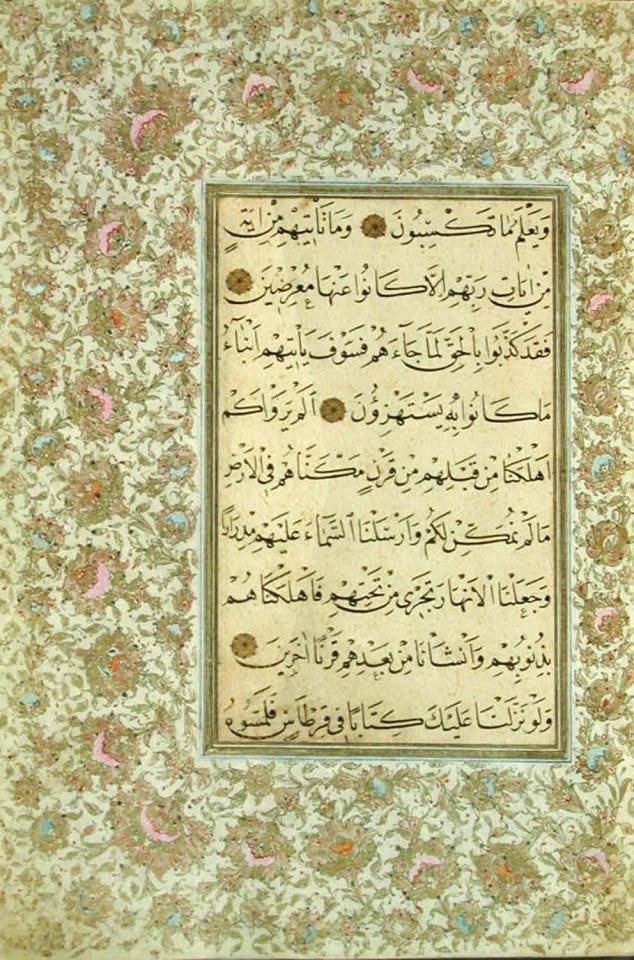 وَيَعْلَمُ مَا تَكْسِبُونَ ۝ وَمَا تَأْتِيهِمْ مِنْ اٰيَةٍ
مِنْ اٰيَاتِ رَبِّهِمْ اِلَّا كَانُوا عَنْهَا مُعْرِضِينَ ۝
فَقَدْ كَذَّبُوا بِالْحَقِّ لَمَّا جَاءَهُمْ فَسَوْفَ يَأْتِيهِمْ اَنْبَاءُ
مَا كَانُوا بِهِ يَسْتَهْزِؤُنَ ۝ اَلَمْ يَرَوْا كَمْ
اَهْلَكْنَا مِنْ قَبْلِهِمْ مِنْ قَرْنٍ مَكَّنَّاهُمْ فِي الْاَرْضِ
مَا لَمْ نُمَكِّنْ لَكُمْ وَاَرْسَلْنَا السَّمَاءَ عَلَيْهِمْ مِدْرَارًا
وَجَعَلْنَا الْاَنْهَارَ تَجْرِي مِنْ تَحْتِهِمْ فَاَهْلَكْنَاهُمْ
بِذُنُوبِهِمْ وَاَنْشَأْنَا مِنْ بَعْدِهِمْ قَرْنًا اٰخَرِينَ ۝
وَلَوْ نَزَّلْنَا عَلَيْكَ كِتَابًا فِي قِرْطَاسٍ فَلَمَسُوهُ